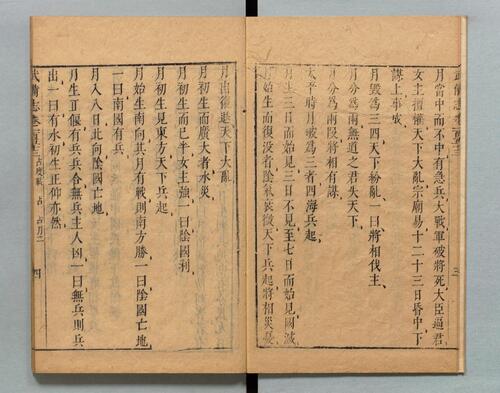 月當中而不中有急兵大戰軍破將死大臣逼君
女主擅權天下大亂宗廟易十二十三日昏中下
謀上事成
月毀爲三四天下紛亂一曰將相伐主
月分爲兩無道之君失天下
月分爲兩段將相有謀
太平時月破爲三者四海兵起
月生三日而始見三日不見至七日而始見國滅
月始生而復没者陰氣衰微天下兵起將相災憂
三
月出復退天下大亂
月初生而廣大者水災
月初生而已半女主強一曰陰國利
月初生見東方天下兵起
月始生南向其月有戰則南方勝一曰陰國亡地
一曰南國有兵
月入八日北向陰國亡地
月生正偃有兵兵合無兵主人凶一曰無兵則兵
出一曰有水初生正仰亦然
武備志卷
占度載 占 占月二
四